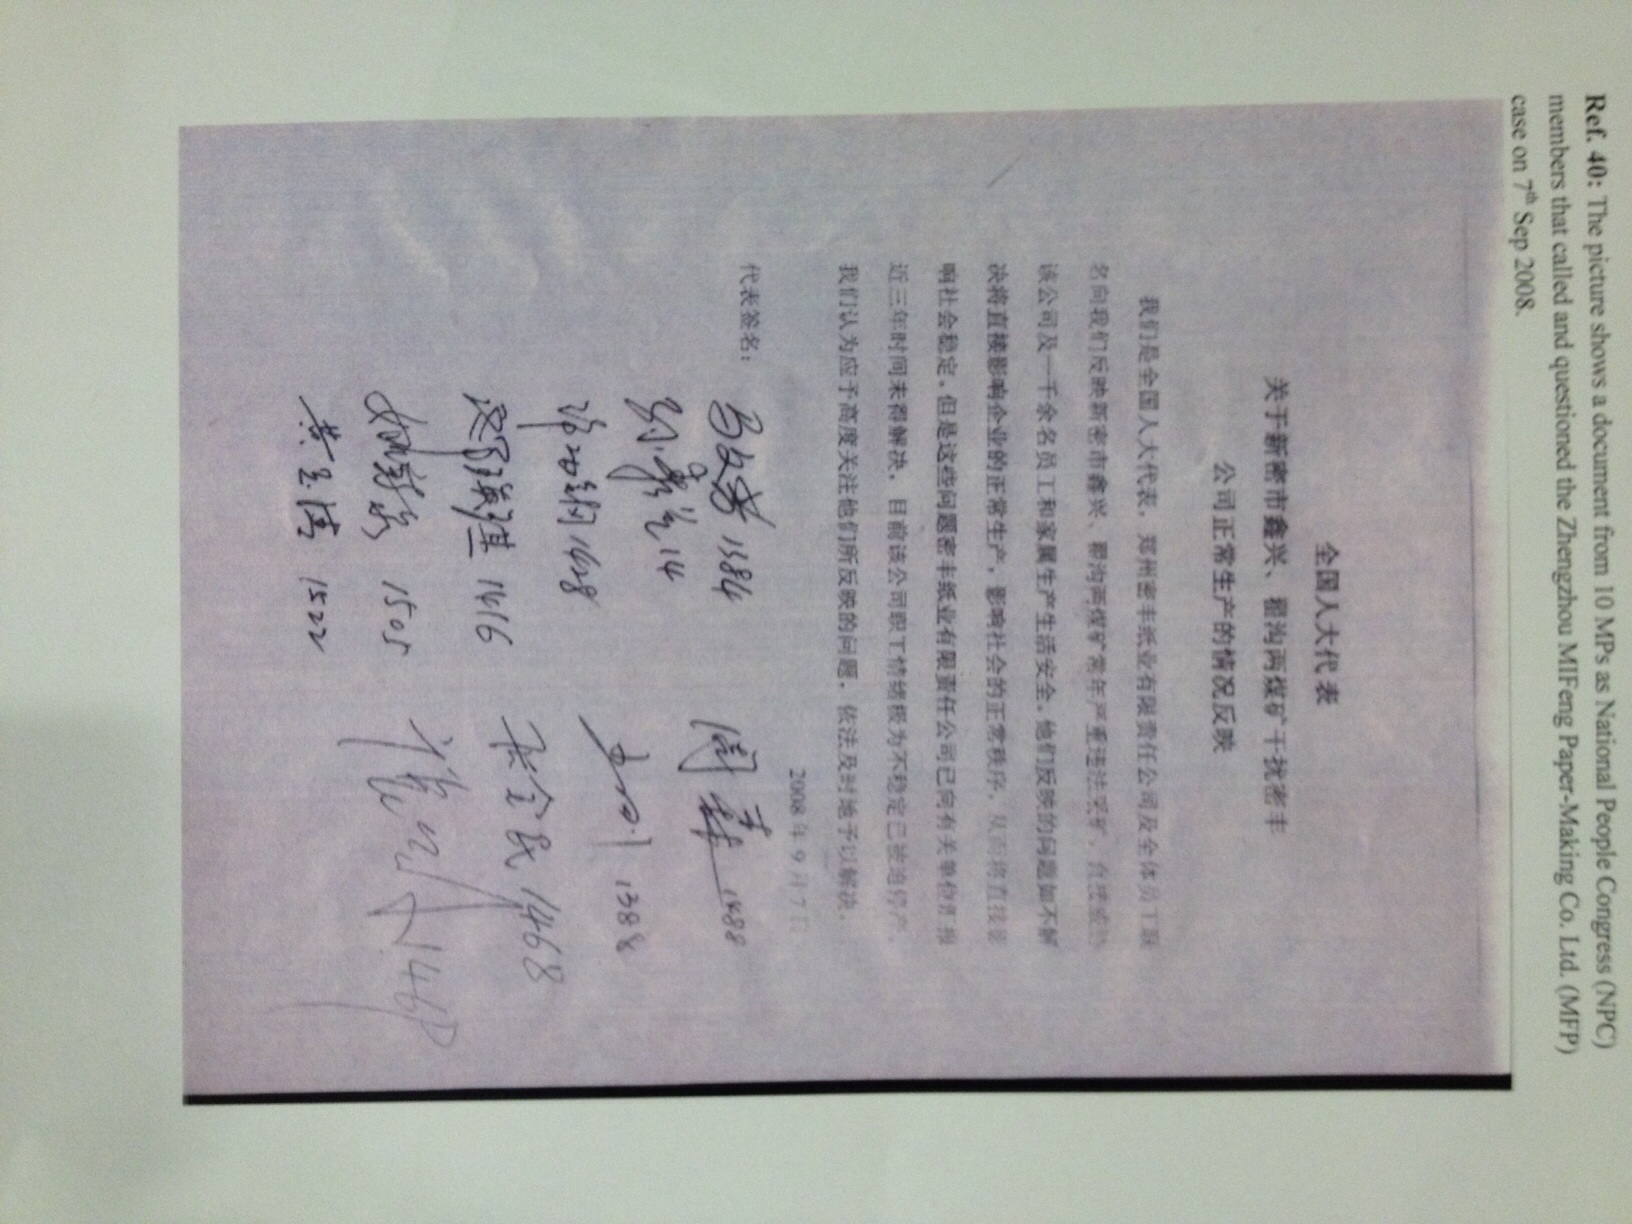 Ref. 40: The picture shows a document from 10 MPs as National People Congress (NPC)
members that called and questioned the Zhengzhou MIFeng Paper-Making Co. Ltd. (MFP)
case on 7th Sep 2008.
全国人大代表
关于新密市鑫兴、翟沟两煤矿干扰密丰
公司正常生产的情况反映
我们是全国人大代表，郑州密丰纸业有限责任公司及全体员工联
名向我们反映新密市鑫兴、翟沟两煤矿常年严重违法采矿，
该公司及一千余名员工和家属生产生活安全。他们反映的问题如不解
决将直接影响企业的正常生产，影响社会的正常秩序，从而将直接影
响社会稳定。但是这些问题密丰纸业有限责任公司已向有关单位汇报
近三年时间未得解决，目前该公司职工情绪极为不稳定已被迫停产。
我们认为应予高度关注他们所反映的问题，依法及时地予以解决。
2008年9月7日
代表签名：
1384
1488
14
1388
1628
1468
1416
1505
1522